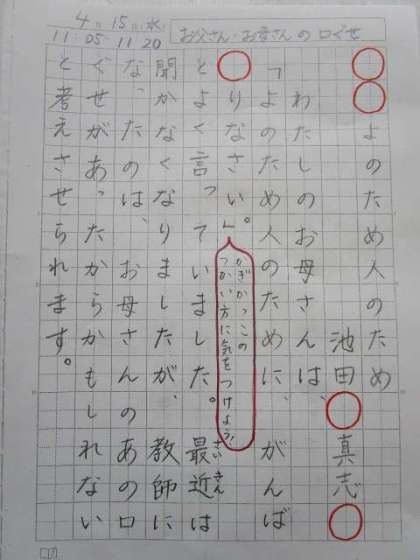 4月15日(水)
11:05-11:20
お父さん・お母さんの口ぐせ
よのため人のため
池田 真志
わたしのお母さんは、
「よのため人のために、がんば
りなさい」。
かぎかっこの
つかい方に気をつけよう!
とよく言っていました。最近は
さいきん
聞かなくなりましたが、教師に
なったのは、お母さんのあの口
ぐせがあったからかもしれない
と考えさせられます。